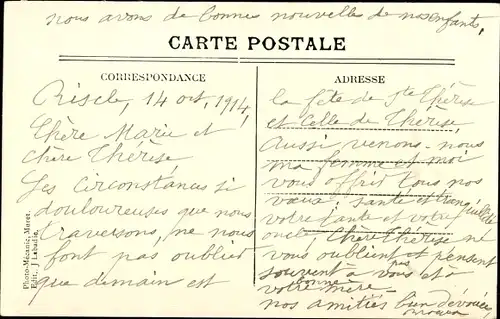 nous avons de bonnes nouvelle de nos enfants,
CARTE POSTALE
CORRESPONDANCE
Riscle, 14 oct, 1914,
Chère Marie et
chère Thérèse
Les circonstances si
douloureuses que nous
traversons, ne nous
font pas oublier
que demain est
ADRESSE
la fête de Ste Thérèse
et celle de Thérèse,
Aussi venons-nous
ma femme et moi
vous offrir tous nos
vœux: santé et tranquillité
votre santé et votre
Chère Thérèse ne
vous oublient pas et pensent
souvent à vous et à
votre bonne mère
nos amitiés bien dévouées
Photo-Mécanic, Marot.
Edit. J Labadie.